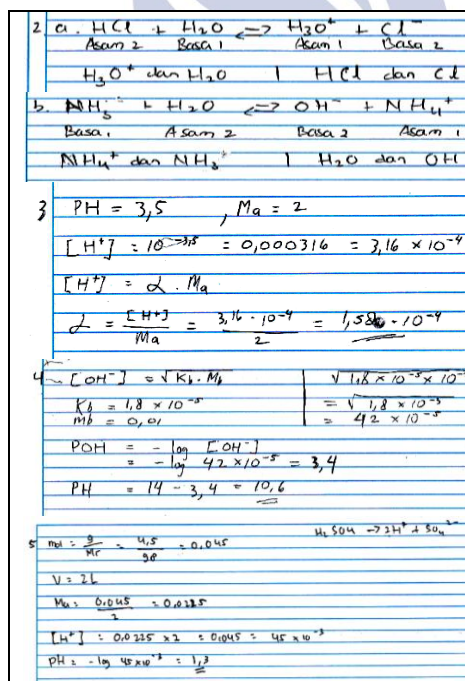 2. a. HCl + H₂O <=> H₃O⁺ + Cl⁻
Asam 2 Basa 1 Asam 1 Basa 2
H₃O⁺ dan H₂O | HCl dan Cl
b. NH₃ + H₂O <=> OH⁻ + NH₄⁺
Basa 1 Asam 2 Basa 2 Asam 1
NH₄⁺ dan NH₃ | H₂O dan OH
3 PH = 3,5 , Ma = 2
[H⁺] = 10⁻³,⁵ = 0,000316 = 3,16 × 10⁻⁴
[H⁺] = α . Ma
α = [H⁺]/Ma = 3,16 . 10⁻⁴/2 = 1,58 . 10⁻⁴
4 [OH⁻] = √Kb . Mb | √1,8 × 10⁻⁵ × 10
Kb = 1,8 × 10⁻⁵ = √1,8 × 10⁻⁵
Mb = 0,01 = 42 × 10⁻⁵
POH = - log [OH⁻]
= - log 42 × 10⁻⁵ = 3,4
PH = 14 - 3,4 = 10,6
5 mol = g/Mr = 4,5/98 = 0,045 H₂SO₄ → 2H⁺ + SO₄²⁻
V = 2L
Ma = 0,045/2 = 0,0225
[H⁺] = 0,0225 × 2 = 0,045 = 45 × 10⁻³
PH = - log 45×10⁻³ = 1,3